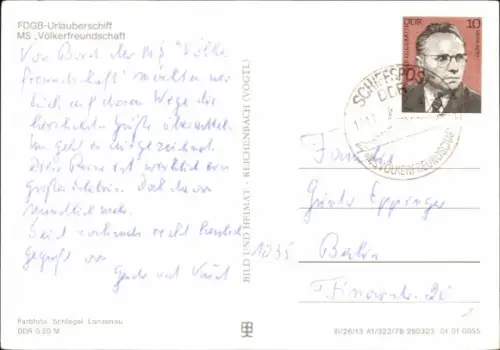 FDGB-Urlauberschiff
MS „Völkerfreundschaft
Von Bord der MS "Völker-
freundschaft" möchten wir
Euch auf diesem Wege die
herzlichsten Grüße übermitteln.
Uns geht es ausgezeichnet.
Diese Reise ist wirklich ein
großes Erlebnis. Doch davon
mündlich mehr.
Seid nochmals recht herzlich
gegrüßt von
Gerda und Kurt
Farbfoto: Schlegel, Lanzenau
DDR 0,20 M
BILD UND HEIMAT · REICHENBACH (VOGTL)
DDR 10
SCHIFFSPOST
DDR
MS VÖLKERFREUNDSCHAFT
Familie
Günter Eppinger
1035 Berlin
Finowstr. 20
III/26/13 A1/323/78 280323 01 01 0055